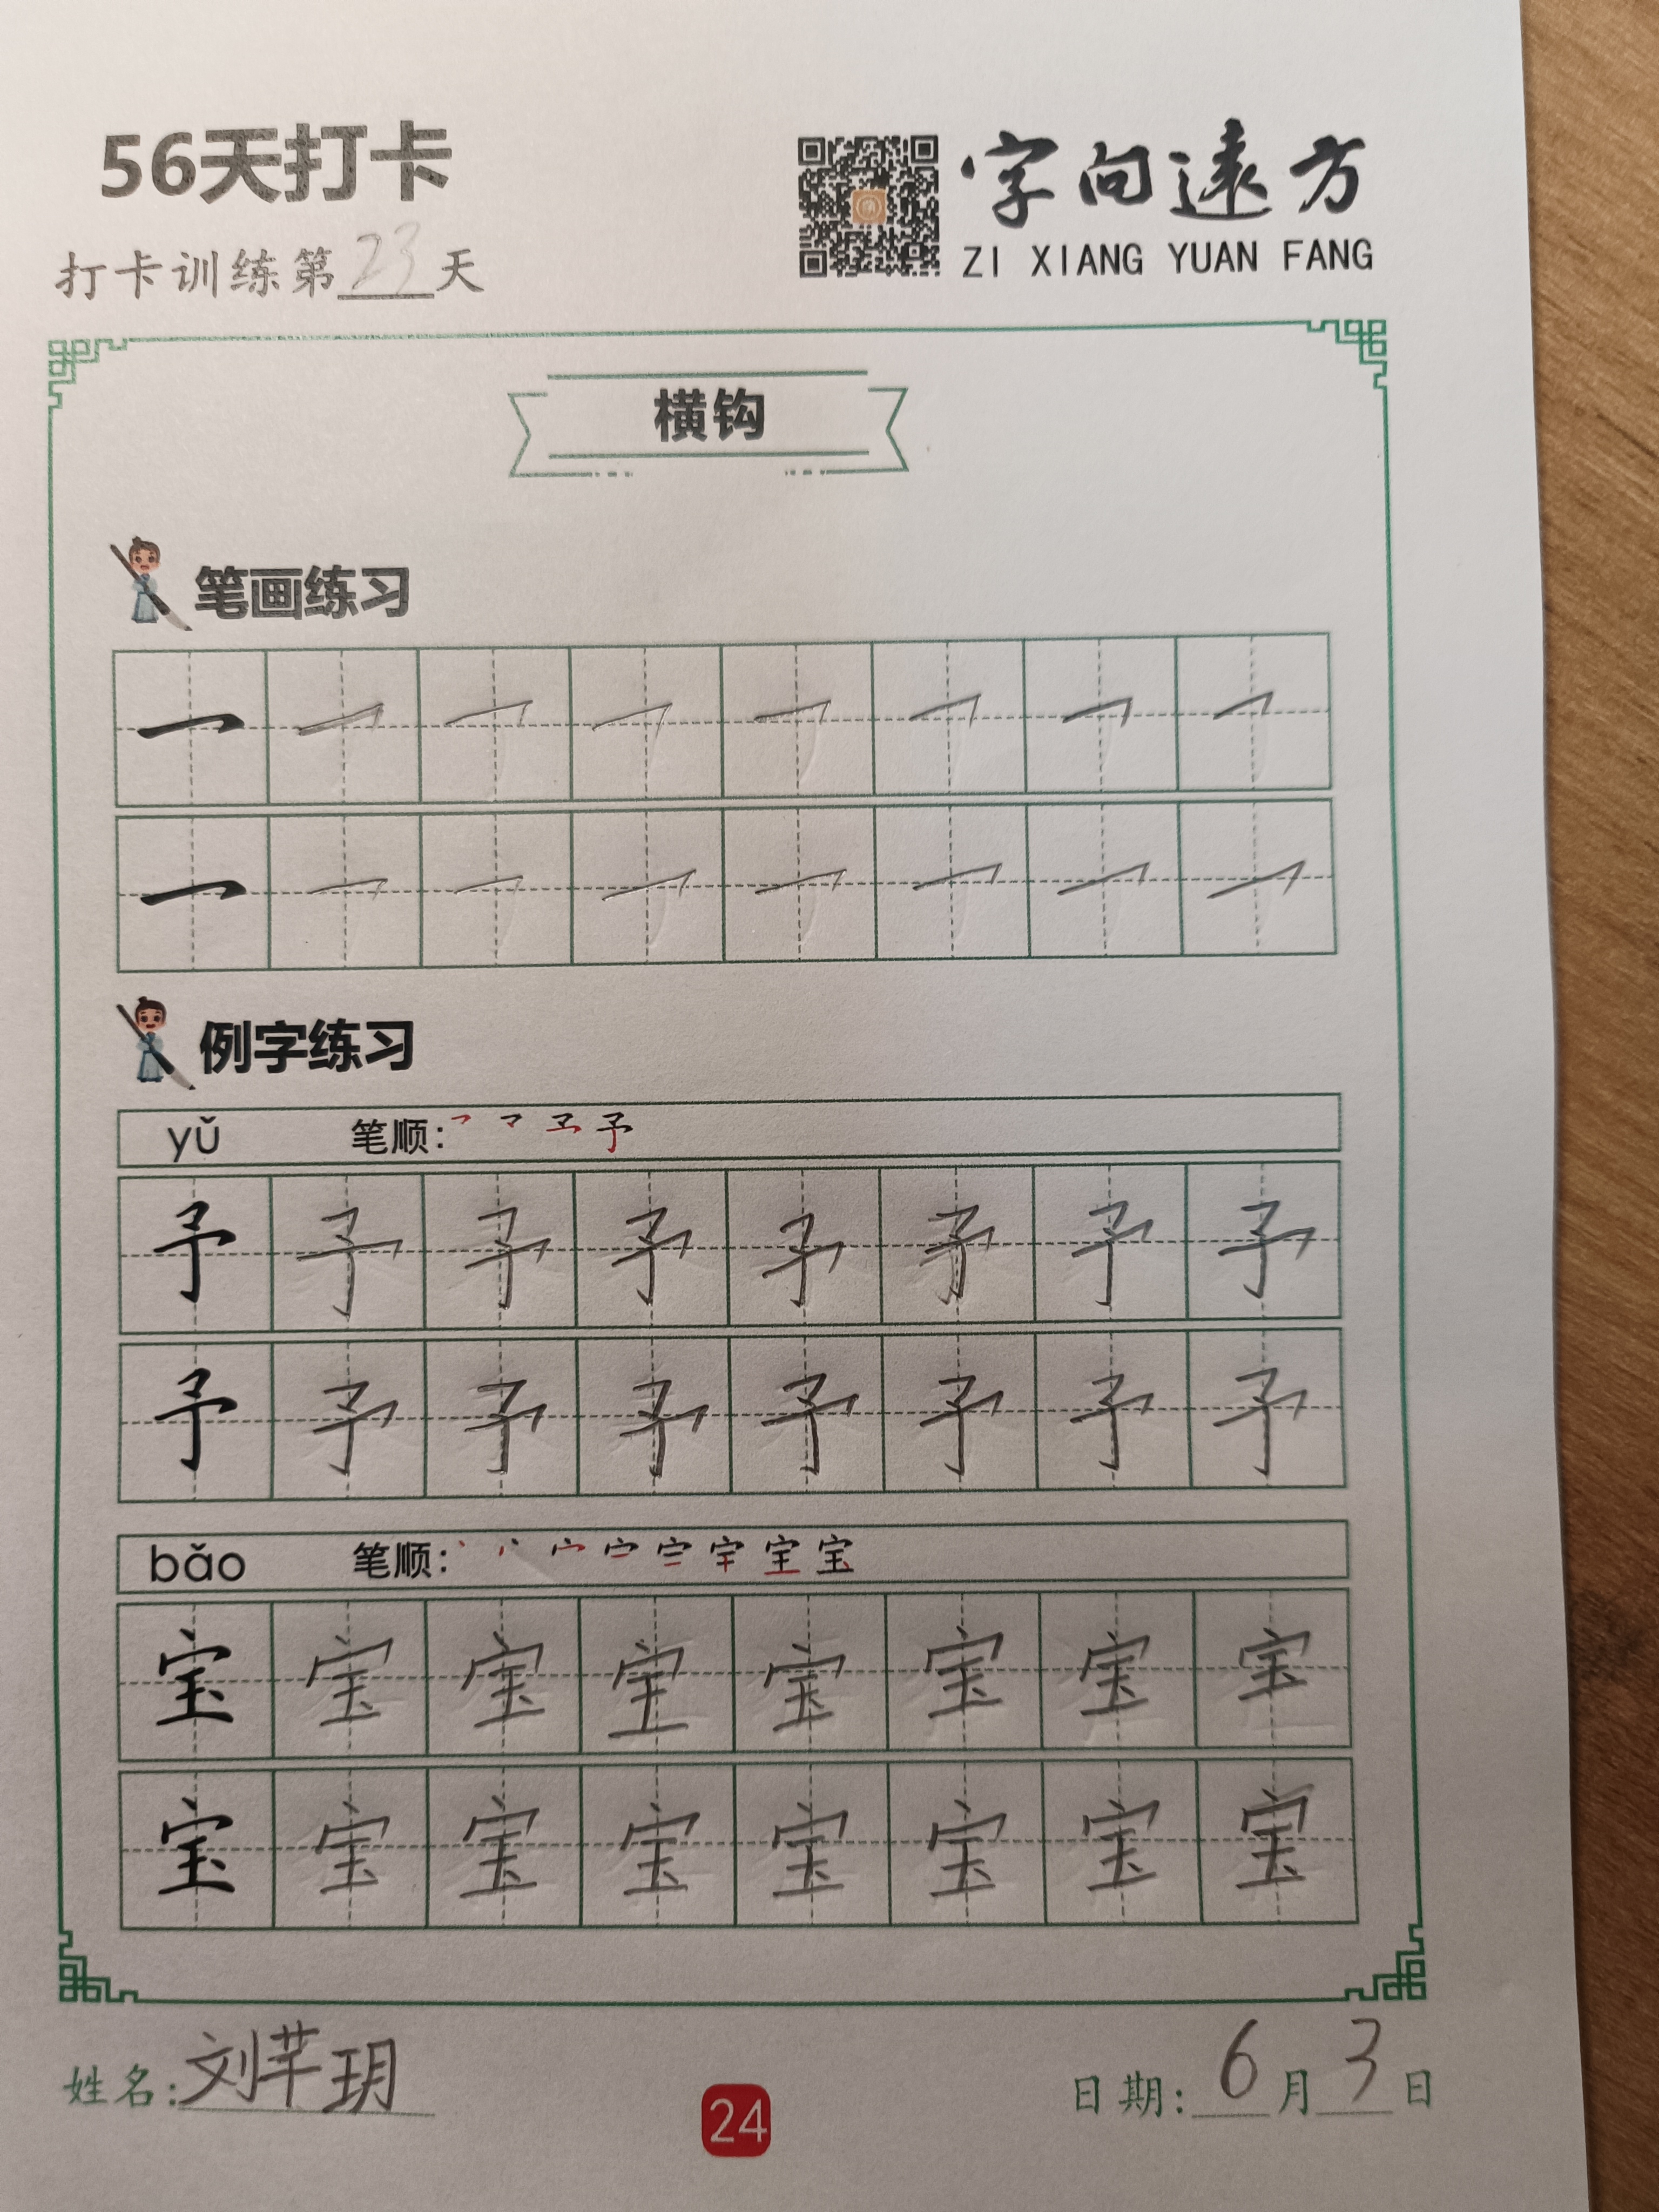 56天打卡
字向遠方
ZI XIANG YUAN FANG
打卡训练第23天
横钩
笔画练习
例字练习
yǔ 笔顺:
予 予 予 予 予 予 予 予
予 予 予 予 予 予 予 予
bǎo 笔顺:
宝 宝 宝 宝 宝 宝 宝 宝
宝 宝 宝 宝 宝 宝 宝 宝
姓名:刘芊玥
24
日期:6月3日